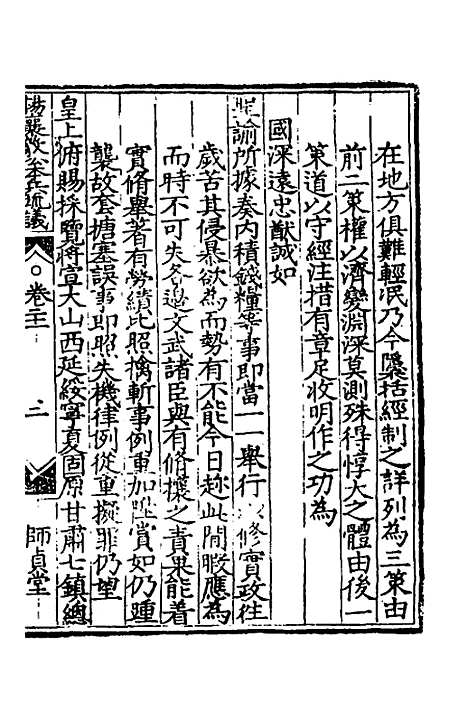 在地方俱難輕泯乃今隱括經制之詳列為三策由
前二策權以濟變淵深莫測殊得惇大之體由後一
策道以守經注措有章足收明作之功為
國深遠忠猷誠如
聖諭所據奏內積錢糧等事即當一一舉行修實政往
歲苦其侵暴欲為而勢有不能今日趂此閒暇應為
而時不可失各邊文武諸臣與有修攘之責果能着
實脩舉著有勞績比照擒斬事例重加陞賞如仍踵
襲故套搪塞誤事即照失機律例從重擬罪仍望
皇上俯賜採覽將宣大山西延綏寧夏固原甘肅七鎮總
楊襄毅公本兵疏議 卷二 二 師貞堂